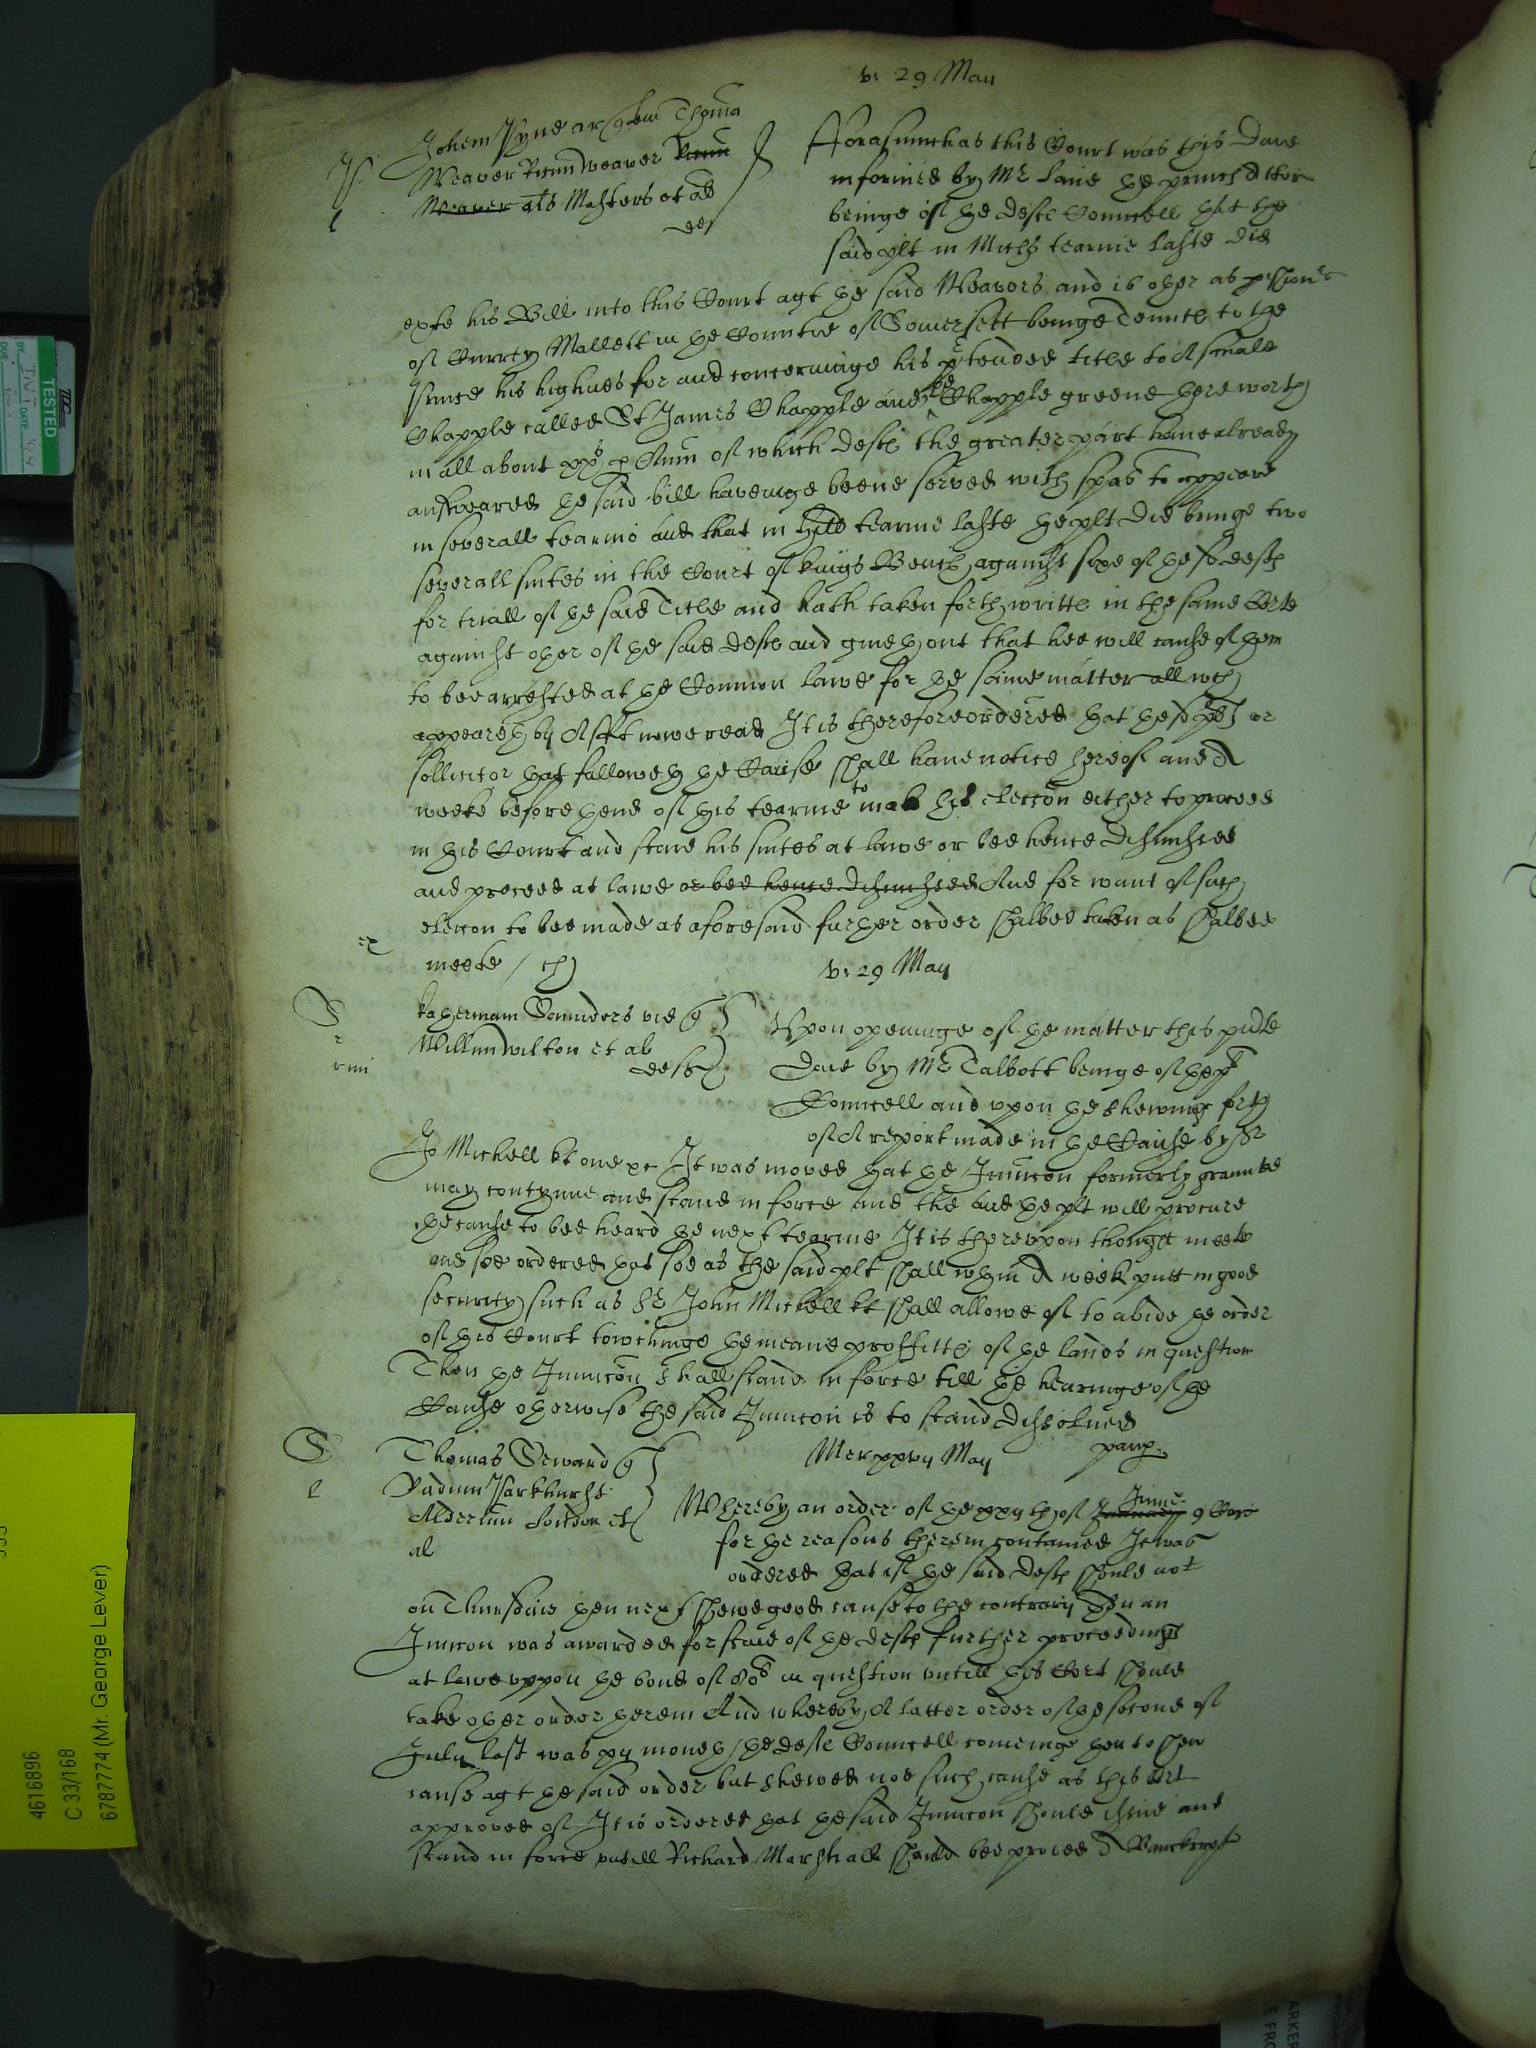 v: 29 May
Johem Pyne ar quer Thoma
Weaver Ricum Weaver
Weaver als Masters et al
def
Forasmuch as this Court was this daie
informed by Mr Lane the princes Attor
beinge of the defts Councell that the
said plt in Michs tearme laste did
exhe his Bill into this Court agt the said Weavors and 16 other as pishion's
of Currey Mallett in the Countie of Somersett beinge Tennts to the
Prince his highnes for and concerninge his ptended title to A smale
Chapple called St James Chapple and the Chapple greene there worth
in all about xxs p Annu of which defts the greater part have already
answeared the said bill haveinge beene served with spas to appeare
in severall tearms and that in Hill tearme laste the plt did bringe two
severall suites in the Court of kings Bench against sixe of the sd defts
for triall of the said Title and hath taken forth writts in the same Corte
against other of the said defts and giveth out that hee will cause them
to bee arrested at the Common lawe for the same matter all wch
appeareth by Afft nowe read It is therefore ordered that the sd plt or
sollicitor that followeth the Cause shall have notice hereof and A
weeke before thend of this tearme to make his eleccon either to proceed
in this Court and staie his suites at lawe or bee hence dismissed
and proceed at lawe or bee hence dismissed And for want of such
eleccon to bee made as aforesaid further order shalbee taken as shalbee
meete /
v: 29 May
Katherinam Saunders vid quer
Willm Wilton et al
defts
Upon openinge of the matter this pnte
daie by Mr Talbott beinge of the plt
Councell and upon the shewing forth
of A report made in the Cause by Sr
Jo Michell kt one &c It was moved that the Iniuccon formerly graunted
may contynue and stand in force and the and the plt will procure
the cause to bee heard the next tearme It is thereupon thought meete
and soe ordered that soe as the said plt shall wthin A week putt in good
security such as Sr John Michell kt shall allowe of to abide the order
of this Court towchinge the meane proffitts of the lands in question
Then the Iniuccon shall stand in force till the hearinge of the
Cause otherwise the said Iniuccon is to stand dissolued
Thomas Seward quer
Vadium Parkhurst
Aldermn London et
al
Mer xxvij May
Whereby an order of the xxijth of January June
for the reasons therein contained It was
ordered that if the said defts should not
on Thursdaie then next shewe good cause to the contrary Then an
Iniuccon was awarded for staie of the defts further proceedings
at lawe uppon the bond of 80l in question untill this Cort should
take other order therein And whereby A latter order of the second of
July last was xij moneth the defts Councell comeinge then to shew
cause agt the said order but shewed noe such cause as this Cort
approved of It is ordered that the said Iniuccon should issue and
stand in force untill Richard Marshall should bee proved A Banckrupt
TESTED
BY
DATE
DUE
4616896
C 33/168
6787774 (Mr. George Lever)